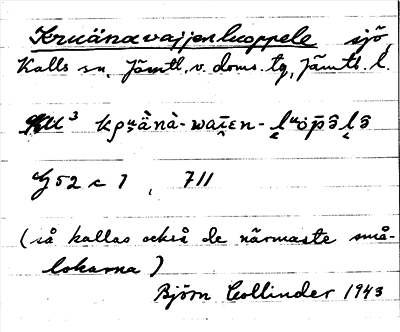 Kruänavajjenluoppele sjö,
Kalls sn, Jämtl. v. doms. tg, Jämtl. l.
kρᵘ̯ä̀nà-waī̯ᴇn-l̯ᵘȯp̄ə̑l̯ə̑
G 52 c 7, 711
(så kallas också de närmaste små-
lokarna)
Björn Collinder 1943